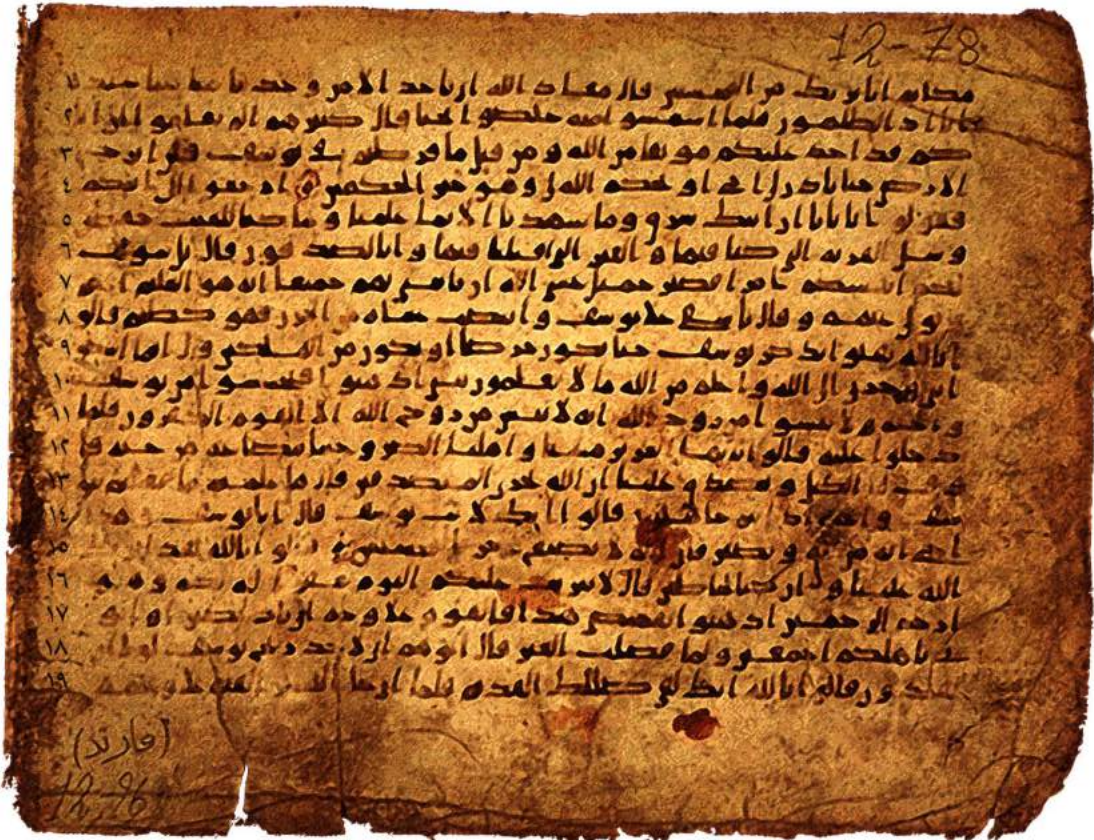 12-78
مكانه انا نريك من المحسنين قال معاذ الله ان ناخذ الا من وجدنا متعنا عنده ١
انا اذا لظلمون فلما استيسوا منه خلصوا نجيا قال كبيرهم الم تعلموا ان ابا ٢
كم قد اخذ عليكم موثقا من الله ومن قبل ما فرطتم في يوسف فلن ابرح ٣
الارض حتى ياذن لي ابي او يحكم الله لي وهو خير الحكمين ارجعوا الى ابيكم ٤
فقولوا يابانا ان ابنك سرق وما شهدنا الا بما علمنا وما كنا للغيب حفظين ٥
وسل القرية التي كنا فيها والعير التي اقبلنا فيها وانا لصدقون قال بل سولت ٦
لكم انفسكم امرا فصبر جميل عسى الله ان ياتيني بهم جميعا انه هو العليم الحكيم ٧
وتولى عنهم وقال ياسفى على يوسف وابيضت عيناه من الحزن فهو كظيم قالوا ٨
تالله تفتوا تذكر يوسف حتى تكون حرضا او تكون من الهلكين قال انما اشكوا ٩
بثي وحزني الى الله واعلم من الله ما لا تعلمون يبني اذهبوا فتحسسوا من يوسف ١٠
واخيه ولا تيسوا من روح الله انه لا ييس من روح الله الا القوم الكفرون فلما ١١
دخلوا عليه قالوا يايها العزيز مسنا واهلنا الضر وجينا ببضاعة مزجية فا ١٢
وف لنا الكيل وتصدق علينا ان الله يجزي المتصدقين قال هل علمتم ما فعلتم بيو ١٣
سف واخيه اذ انتم جاهلون قالوا انك لانت يوسف قال انا يوسف وهذا ١٤
اخي انه من يتق ويصبر فان الله لا يضيع اجر المحسنين قالوا تالله لقد اثرك ١٥
الله علينا وان كنا لخاطين قال لا تثريب عليكم اليوم يغفر الله لكم وهو ١٦
ارحم الرحمين اذهبوا بقميصي هذا فالقوه على وجه ابي يات بصيرا واتو ١٧
ني باهلكم اجمعين ولما فصلت العير قال ابوهم اني لاجد ريح يوسف لولا ان ١٨
تفندون قالوا تالله انك لفي ضللك القديم فلما ان جا البشير القيه على وجهه ١٩
(فارتد)
12-96